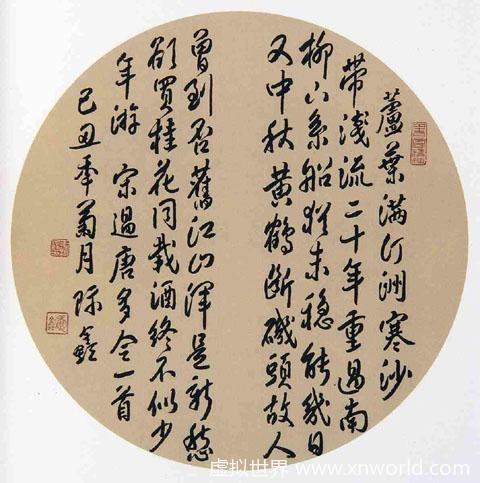 蘆葉滿汀洲寒沙
帶淺流二十年重過南
柳下系船猶未穩能幾日
又中秋黃鶴斷磯頭故人
曾到否舊江山渾是新愁
欲買桂花同載酒終不似少
年游 宋過唐多令一首
己丑年菊月
虚拟世界 www.xnworld.com